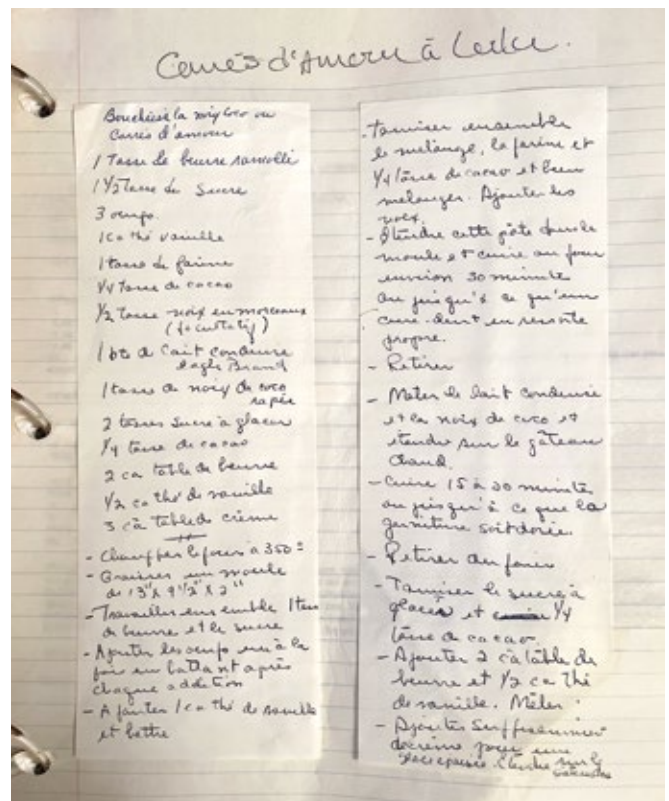 Carrés d'Amour à
Bouchées la noix coco ou
Carrés d'amour
1 Tasse de beurre ramolli
1 1/2 Tasse de Sucre
3 oeufs.
1 c a thé vanille
1 tasse de farine
1/4 Tasse de cacao
1/2 Tasse noix en morceaux
(facultatif)
1 bte de lait condensé
Eagle Brand
1 tasse de noix de coco
rapée
2 tasses sucre à glacer
1/4 tasse de cacao
2 c a table de beurre
1/2 c a thé de vanille
3 c à table de crème
- Chauffer le four à 350°
- Graisser un moule
de 13" X 9 1/2" X 2"
- Travailler ensemble 1 tasse
de beurre et le sucre
- Ajouter les oeufs un à la
fois en battant après
chaque addition
- Ajouter 1 c a thé de vanille
et battre
- Tamiser ensemble
le mélange, la farine et
1/4 tasse de cacao et bien
mélanger. Ajouter les
noix.
- Étendre cette pâte dans le
moule et cuire au four
environ 30 minute
ou jusqu'à ce qu'un
cure-dent en ressorte
propre.
- Retirer
- Mêler le lait condensé
et la noix de coco et
étendre sur le gâteau
chaud.
- Cuire 15 à 20 minutes
ou jusqu'à ce que la
garniture soit dorée.
- Retirer du four
- Tamiser le sucre à
glacer et 1/4
tasse de cacao.
- Ajouter 2 c à table de
beurre et 1/2 c a thé
de vanille. Mêler
- Ajouter suffisamment
de crème pour une
glace épaisse. Étendre sur le
gâteau